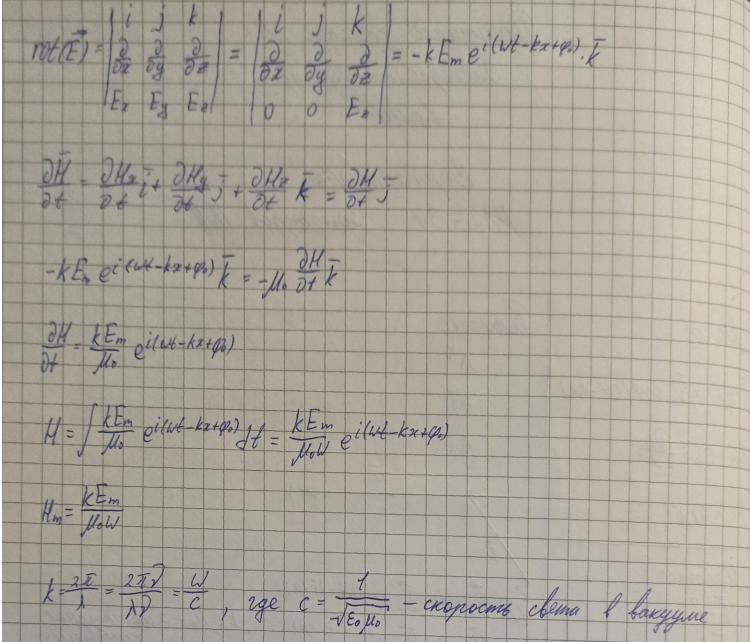 rot(E⃗) = | i j k ; ∂/∂x ∂/∂y ∂/∂z ; Ex Ey Ez | = | i j k ; ∂/∂x ∂/∂y ∂/∂z ; 0 0 Ez | = -kEm e^{i(ωt-kx+φ₀)}·k̄
∂H̄/∂t = ∂Hx/∂t i̅ + ∂Hy/∂t j̅ + ∂Hz/∂t k̅ = ∂H/∂t j̅
-kEm e^{i(ωt-kx+φ₀)} k̅ = -μ₀ ∂H/∂t k̅
∂H/∂t = kEm/μ₀ e^{i(ωt-kx+φ₀)}
H = ∫ kEm/μ₀ e^{i(ωt-kx+φ₀)} dt = kEm/μ₀ω e^{i(ωt-kx+φ₀)}
Hm = kEm/μ₀ω
k = 2π/λ = 2πν/λν = ω/c , где c = 1/√ε₀μ₀ – скорость света в вакууме